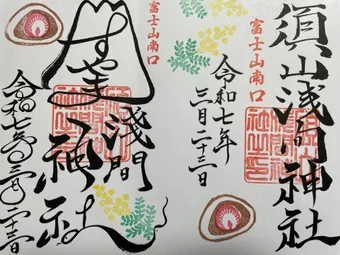 富士山南口
須山浅間神社
令和七年
三月二十三日
富士山南口
すやま
浅間
神社
令和七年三月二十三日